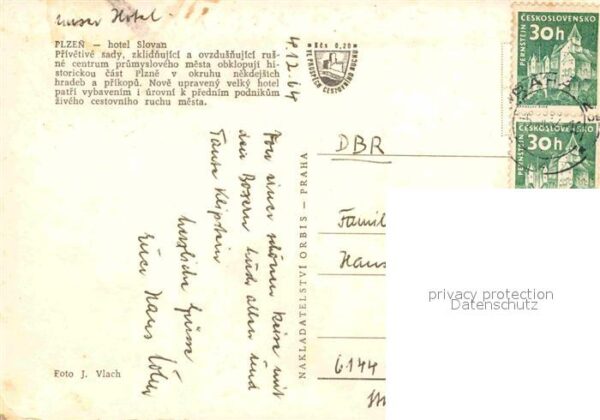 Unser Hotel.
PLZEŇ — hotel Slovan
Přívětivé sady, zklidňující a ovzdušňující ruš-
né centrum průmyslového města obklopují hi-
storickou část Plzně v okruhu někdejších
hradeb a příkopů. Nově upravený velký hotel
patří vybavením i úrovní k předním podnikům
živého cestovního ruchu města.
Kčs 0,20
VE PROSPĚCH CESTOVNÍHO RUCHU
ČESKOSLOVENSKO
PERNŠTEJN
30h
ČESKOSLOVENSKO
PERNŠTEJN
30h
4.12.64
Von einer schönen Reise mit
den Boxern Euch allen und
Tante Klipstein
herzliche Grüsse
Euer Hans
NAKLADATELSTVÍ ORBIS — PRAHA
DBR
Famil
Hans
6144
Foto J. Vlach
privacy protection
Datenschutz